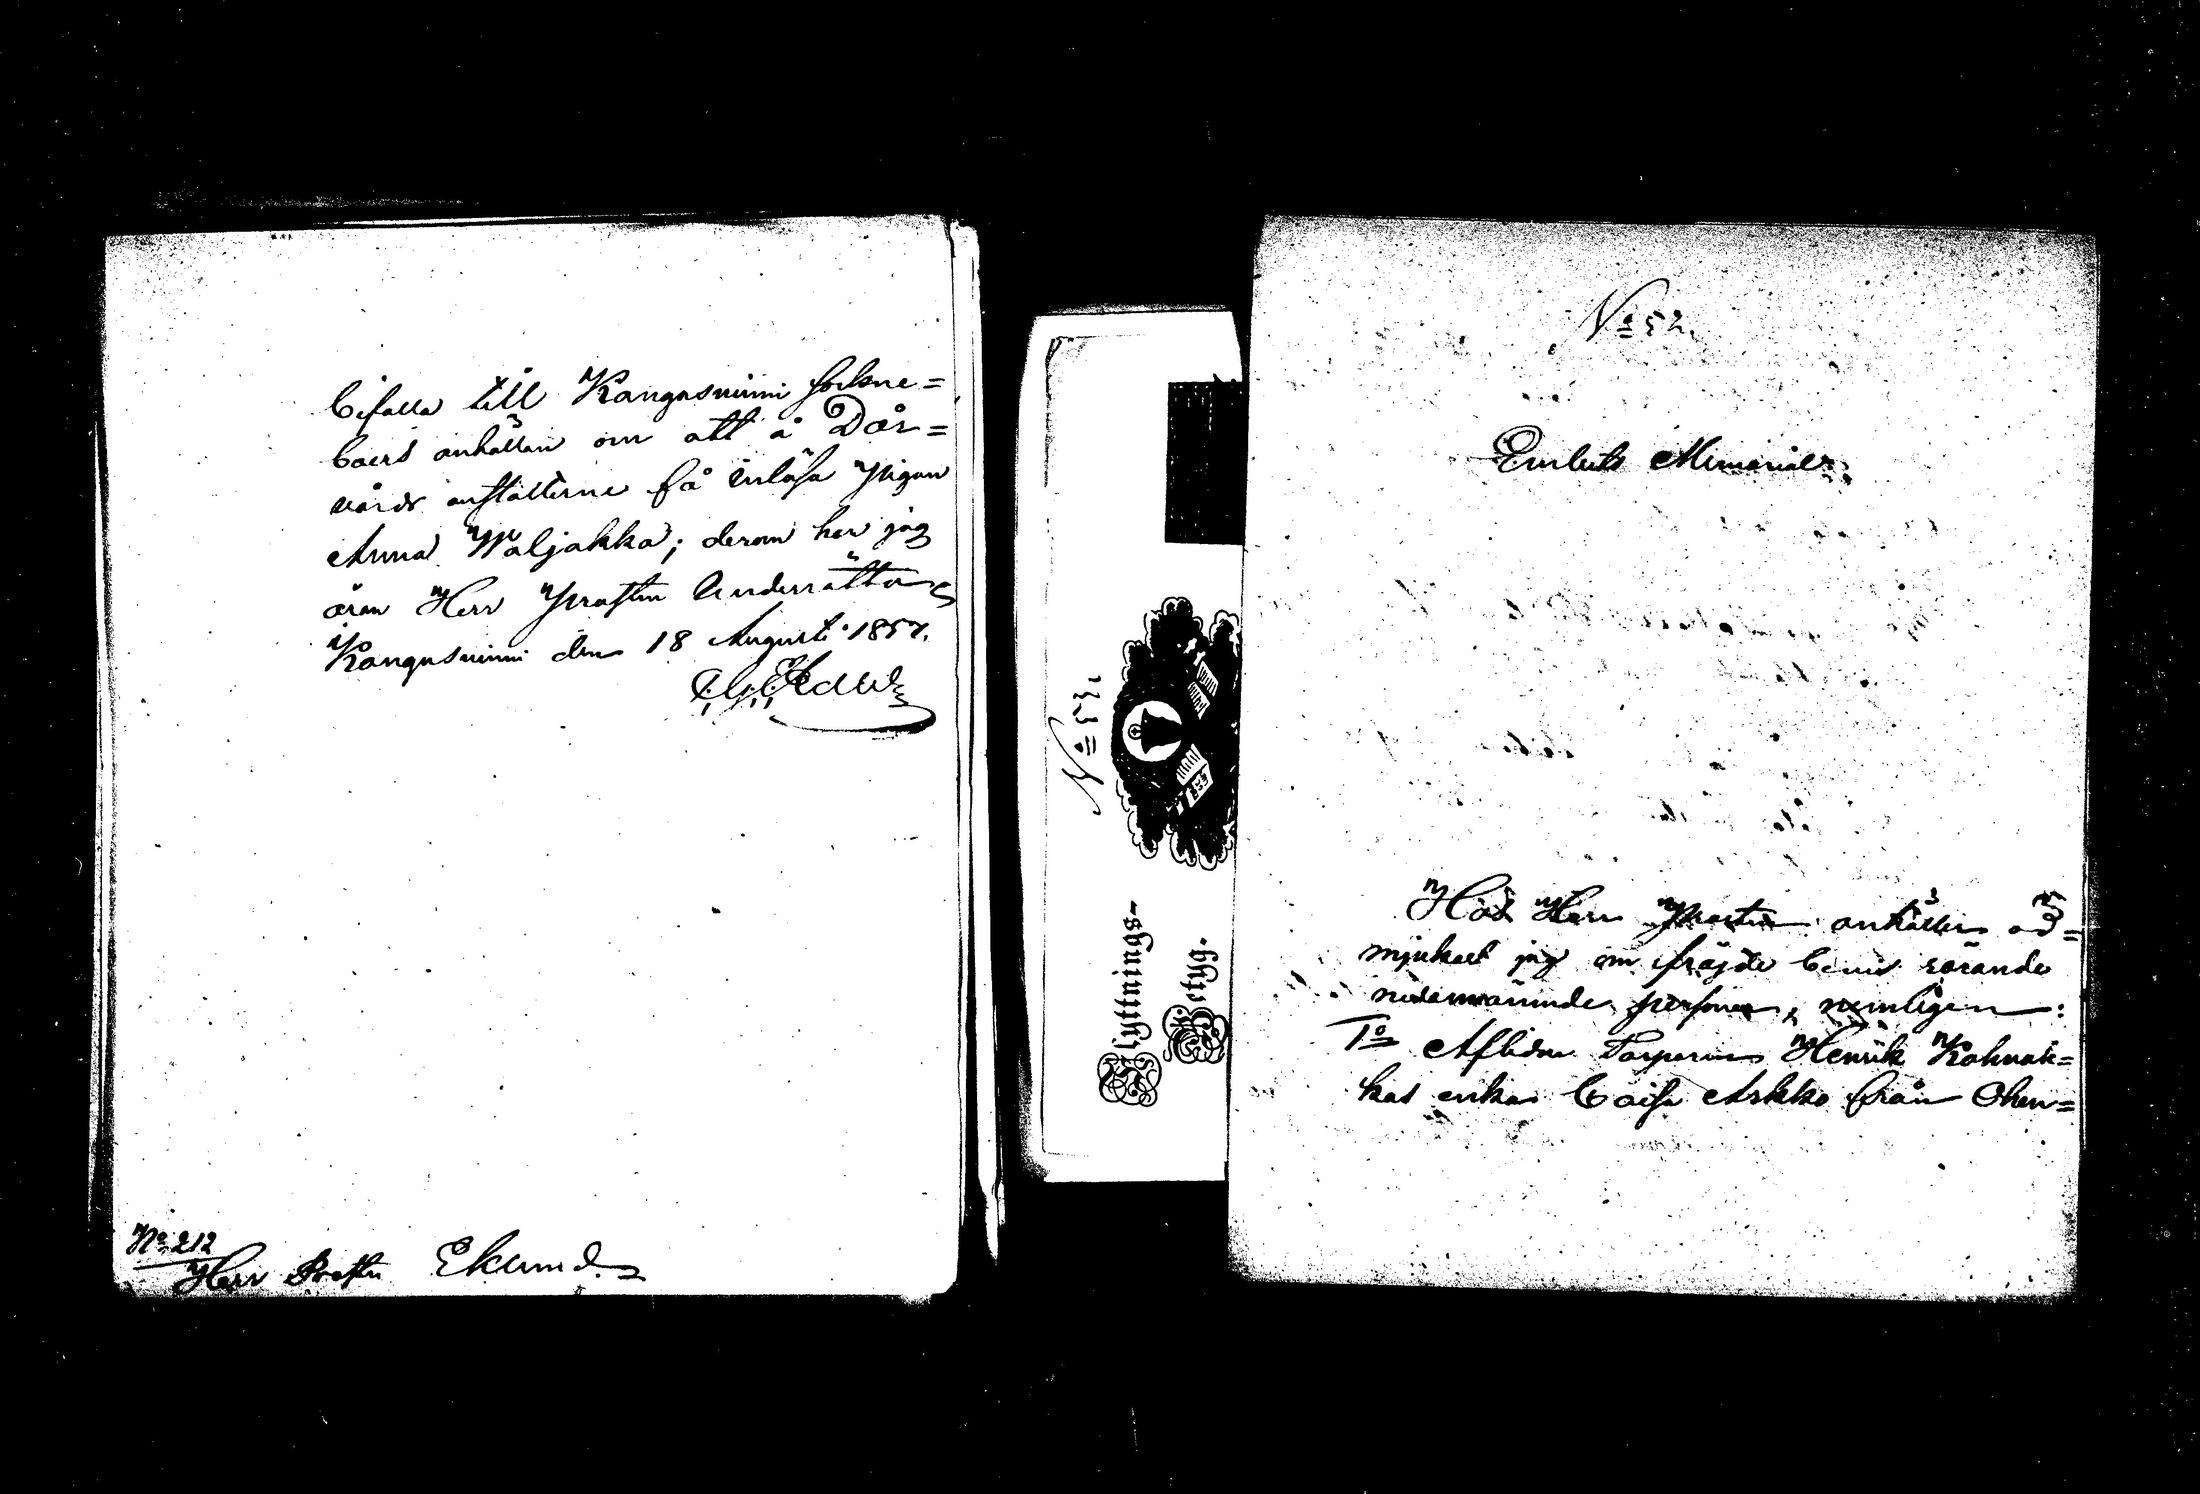 bifalla till Kangasniemi sockne=
boers anhållan om att å Dår=
vårds anstalterne få inlösa Pigan
Anna Waljakka; derom har jag
äran Herr Prosten underrätta
Kangasniemi den 18 Augusti 1857.
No 212
Herr Prosten Eklund.
No 53.
Flyttnings-
Betyg.
No 52.
Embets Memorial
Hos Herr Prosten anhåller öd=
mjukast jag om fräjde bevis rörande
nedannämnde personer, nemligen:
1o Aflidne Torparen Henrik Kohvak=
kas enka Caisa Arkko från Ohen=